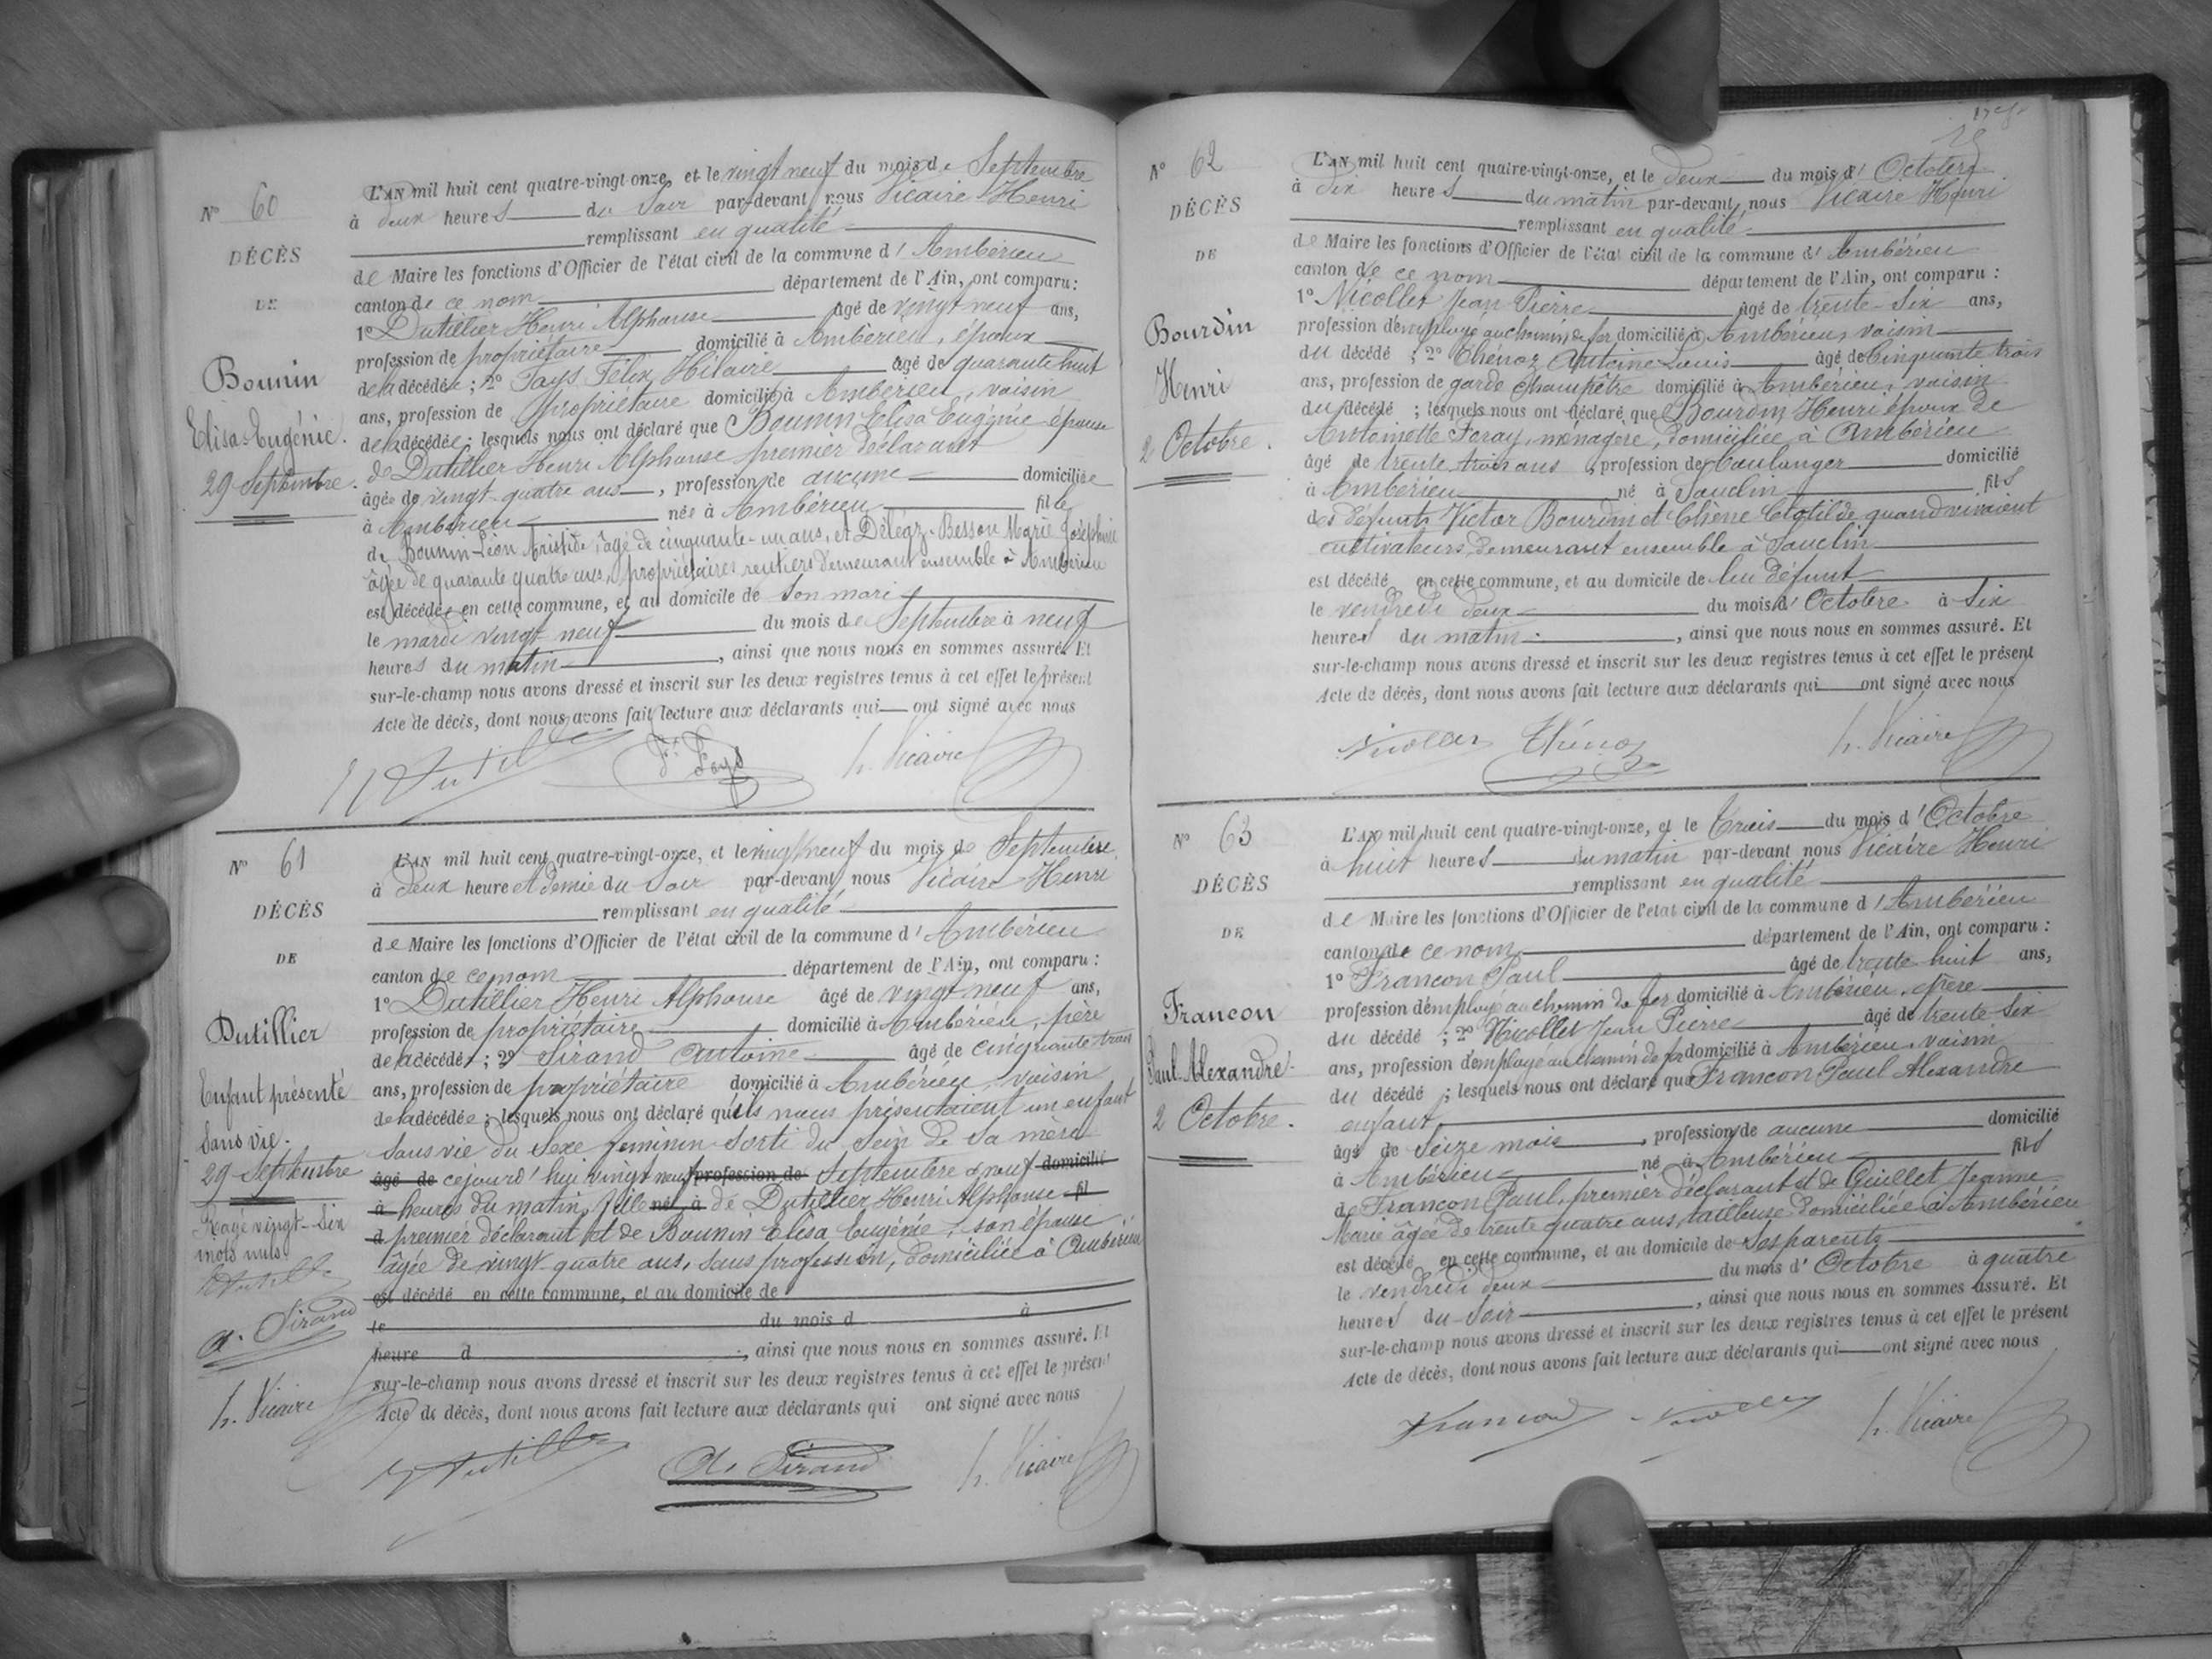 N° 60
DÉCÈS
DE
Bounin
Elisa-Eugénie.
29 Septembre.
L'AN mil huit cent quatre-vingt-onze, et le vingt neuf du mois de Septembre
à deux heures du Soir par-devant nous Vicaire Henri
remplissant en qualité
de Maire les fonctions d'Officier de l'état civil de la commune d' Ambérieu
canton de ce nom département de l'Ain, ont comparu :
1° Dutillier Henri Alphonse âgé de vingt neuf ans,
profession de propriétaire domicilié à Ambérieu, époux
de la décédée ; 2° Fays Félix Hilaire âgé de quarante huit
ans, profession de propriétaire domicilié à Ambérieu, voisin
de la décédée ; lesquels nous ont déclaré que Bounin Elisa Eugénie épouse
de Dutillier Henri Alphonse premier déclarant
âgée de vingt-quatre ans, profession de aucune domiciliée
à Ambérieu née à Ambérieu fille
de Bounin Léon Aristide, âgé de cinquante-un ans, et Déléaz-Besson Marie Joséphine
âgée de quarante quatre ans, propriétaires rentiers demeurant ensemble à Ambérieu
est décédée en cette commune, et au domicile de Son mari
le mardi vingt neuf du mois de Septembre à neuf
heures du matin, ainsi que nous nous en sommes assuré. Et
sur-le-champ nous avons dressé et inscrit sur les deux registres tenus à cet effet le présent
Acte de décès, dont nous avons fait lecture aux déclarants qui ont signé avec nous
H Dutillier F. Fays h. Vicaire
N° 61
DÉCÈS
DE
Dutillier
Enfant présenté
Sans vie.
29 Septembre
Rayé vingt-six
mots nuls
H Dutillier
A. Sirand
h. Vicaire
L'AN mil huit cent quatre-vingt-onze, et le vingt neuf du mois de Septembre
à Deux heure et demie du Soir par-devant nous Vicaire Henri
remplissant en qualité
de Maire les fonctions d'Officier de l'état civil de la commune d' Ambérieu
canton de ce nom département de l'Ain, ont comparu :
1° Dutillier Henri Alphonse âgé de vingt neuf ans,
profession de propriétaire domicilié à Ambérieu, père
de la décédée ; 2° Sirand Antoine âgé de cinquante trois
ans, profession de propriétaire domicilié à Ambérieu, voisin
de la décédée ; lesquels nous ont déclaré qu'ils nous présentaient un enfant
Sans vie du Sexe féminin Sorti du Sein de Sa mère
âgé de cejourd'hui vingt neuf profession de Septembre à neuf domicilié
à heures du matin, fille né à de Dutillier Henri Alphonse fil
d premier déclarant et de Bounin Elisa Eugénie, son épouse
âgée de vingt-quatre ans, Sans profession, domiciliée à Ambérieu
est décédé en cette commune, et au domicile de
le du mois d à
heure d, ainsi que nous nous en sommes assuré. Et
sur-le-champ nous avons dressé et inscrit sur les deux registres tenus à cet effet le présent
Acte de décès, dont nous avons fait lecture aux déclarants qui ont signé avec nous
H Dutillier A. Sirand h. Vicaire
N° 62
DÉCÈS
DE
Bourdin
Henri
2 Octobre.
L'AN mil huit cent quatre-vingt-onze, et le Deux du mois d' Octobre
à Dix heures du matin par-devant nous Vicaire Henri
remplissant en qualité
de Maire les fonctions d'Officier de l'état civil de la commune d' Ambérieu
canton de ce nom département de l'Ain, ont comparu :
1° Nicollet Jean Pierre âgé de trente-Six ans,
profession d'employé au chemin de fer domicilié à Ambérieu, voisin
du décédé ; 2° Thénoz Antoine Louis âgé de Cinquante trois
ans, profession de garde champêtre domicilié à Ambérieu, voisin
du décédé ; lesquels nous ont déclaré que Bourdin Henri époux de
Antoinette Foray, ménagère, domiciliée à Ambérieu
âgé de trente trois ans, profession de Boulanger domicilié
à Ambérieu né à Sauclin fils
des défunts Victor Bourdin et Chêne Clotilde quand vivaient
cultivateurs, demeurant ensemble à Sauclin
est décédé en cette commune, et au domicile de lui défunt
le vendredi deux du mois d' Octobre à Six
heures du matin, ainsi que nous nous en sommes assuré. Et
sur-le-champ nous avons dressé et inscrit sur les deux registres tenus à cet effet le présent
Acte de décès, dont nous avons fait lecture aux déclarants qui ont signé avec nous
Nicollet Thénoz h. Vicaire
N° 63
DÉCÈS
DE
Francon
Paul-Alexandre.
2 Octobre.
L'AN mil huit cent quatre-vingt-onze, et le trois du mois d' Octobre
à huit heures du matin par-devant nous Vicaire Henri
remplissant en qualité
de Maire les fonctions d'Officier de l'état civil de la commune d' Ambérieu
canton de ce nom département de l'Ain, ont comparu :
1° Francon Paul âgé de trente huit ans,
profession d'employé au chemin de fer domicilié à Ambérieu, père
du décédé ; 2° Nicollet Jean Pierre âgé de trente Six
ans, profession d'employé au chemin de fer domicilié à Ambérieu, voisin
du décédé ; lesquels nous ont déclaré que Francon Paul Alexandre
enfant
âgé de Seize mois, profession de aucune domicilié
à Ambérieu né à Ambérieu fils
de Francon Paul, premier déclarant et de Guillet Jeanne
Marie âgée de trente quatre ans, tailleuse domiciliée à Ambérieu
est décédé en cette commune, et au domicile de Ses parents
le vendredi deux du mois d' Octobre à quatre
heures du Soir, ainsi que nous nous en sommes assuré. Et
sur-le-champ nous avons dressé et inscrit sur les deux registres tenus à cet effet le présent
Acte de décès, dont nous avons fait lecture aux déclarants qui ont signé avec nous
Francon Nicollet h. Vicaire